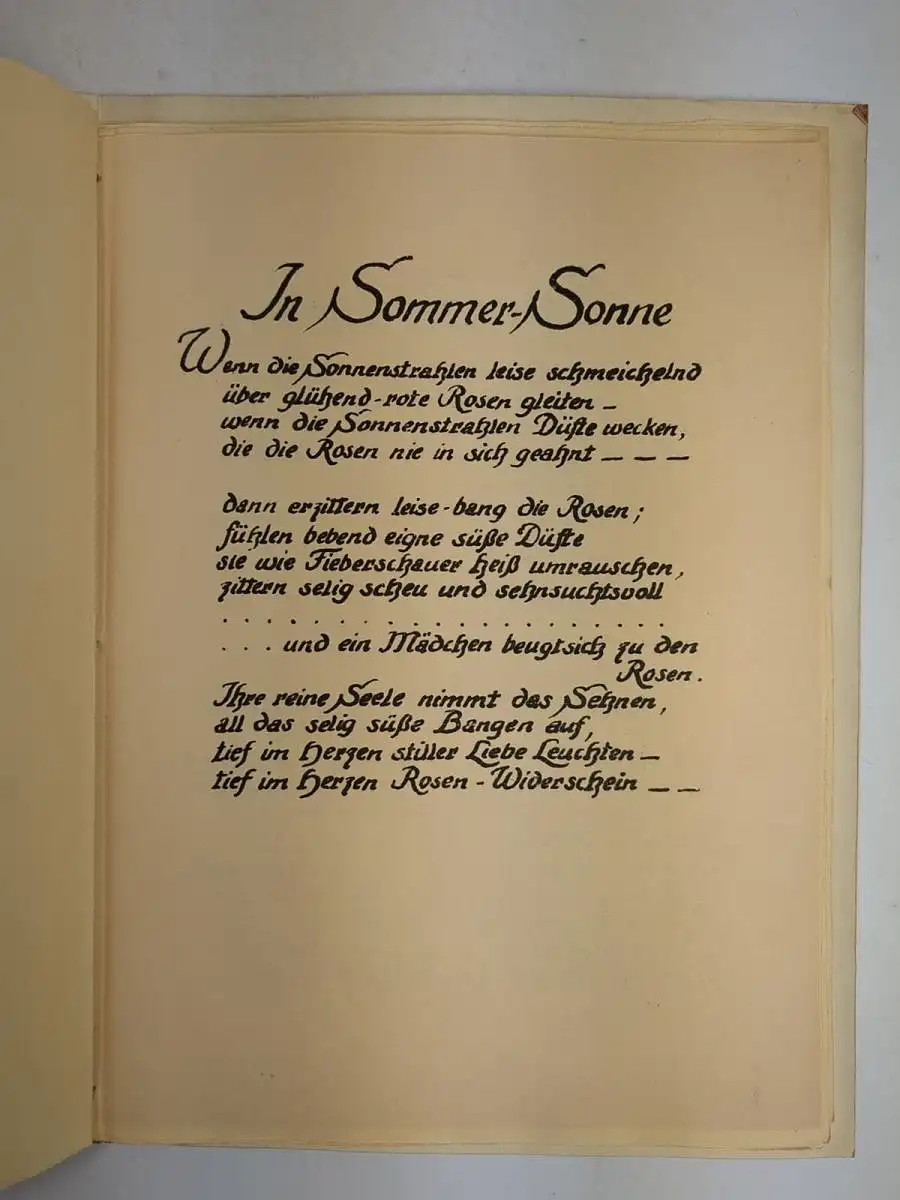 In Sommer-Sonne
Wenn die Sonnenstrahlen leise schmeichelnd
über glühend-rote Rosen gleiten –
wenn die Sonnenstrahlen Düfte wecken,
die die Rosen nie in sich geahnt – – –
dann erzittern leise-bang die Rosen;
fühlen bebend eigne süße Düfte
sie wie Fieberschauer heiß umrauschen,
zittern selig scheu und sehnsuchtsvoll
. . . . . . . . . . . . . . . . . . .
. . . und ein Mädchen beugt sich zu den
Rosen.
Ihre reine Seele nimmt das Sehnen,
all das selig süße Bangen auf,
tief im Herzen stiller Liebe Leuchten –
tief im Herzen Rosen-Widerschein – –